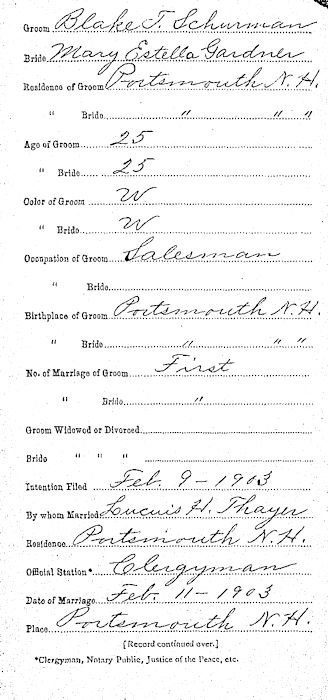 Groom Blake T. Schurman
Bride Mary Estella Gardner
Residence of Groom Portsmouth N.H.
" Bride " " "
Age of Groom 25
" Bride 25
Color of Groom W
" Bride W
Occupation of Groom Salesman
" Bride
Birthplace of Groom Portsmouth N.H.
" Bride " " "
No. of Marriage of Groom First
" Bride "
Groom Widowed or Divorced
Bride " " "
Intention Filed Feb. 9 - 1903
By whom Married Lucuis H. Thayer
Residence Portsmouth N.H.
Official Station* Clergyman
Date of Marriage Feb. 11 - 1903
Place Portsmouth N.H.
[Record continued over.]
*Clergyman, Notary Public, Justice of the Peace, etc.